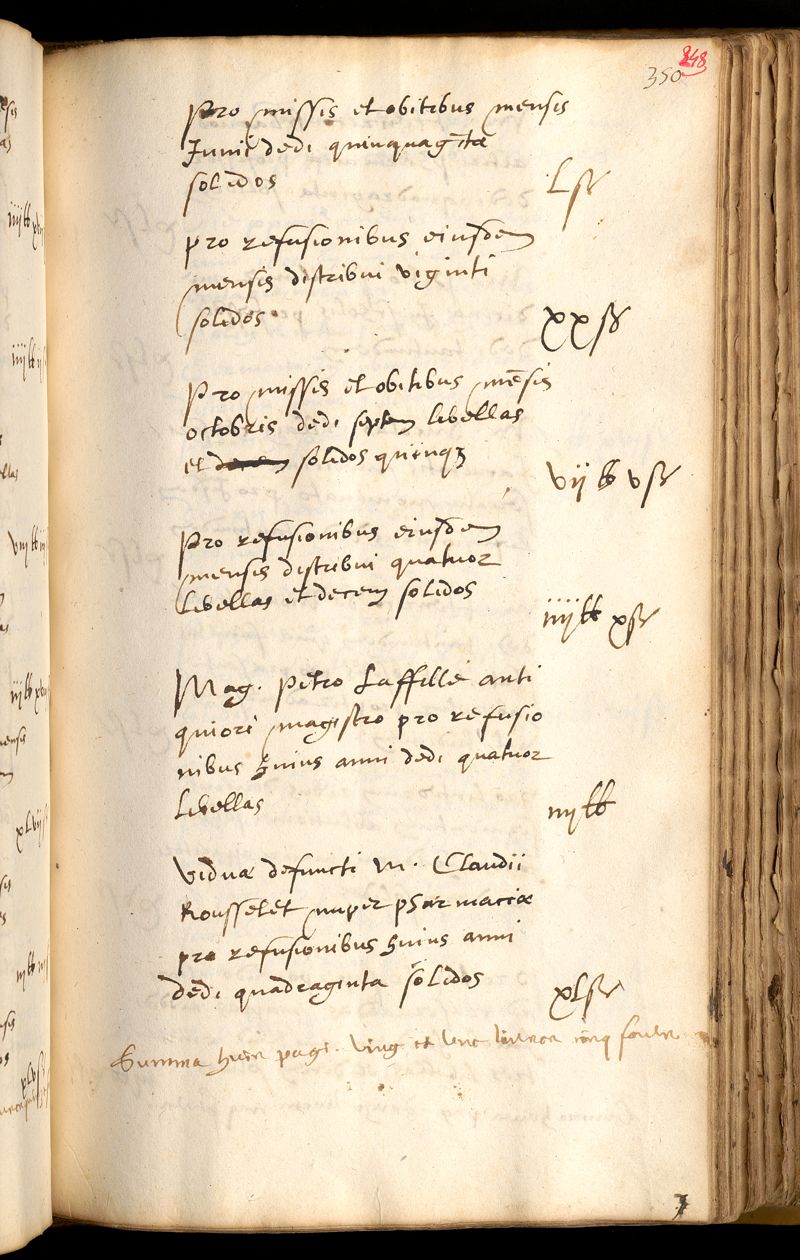 348
350
Pro missis et obitibus mensis
Junii dedi quinquagīta
solidos
Ls
pro refusionibus eiusdem
mensis distribui viginti
solidos
xxs
Pro missis et obitibus mēsis
octobris dedi septem libellas
et solidos quinqz
vij lb vs
Pro refusionibus eiusdem
mensis distribui quatuor
libellas et decem solidos
iiij lb xs
Mag. Petro Laffillé anti
quiori magistro pro refusio
nibus huius anni dedi quatuor
libellas
iiij lb
viduæ defuncti M. Claudii
Rousselet nuper pharmaciæ
pro refusionibus huius anni
dedi quadraginta solidos
xLs
Summa huius pagi. Vingt et